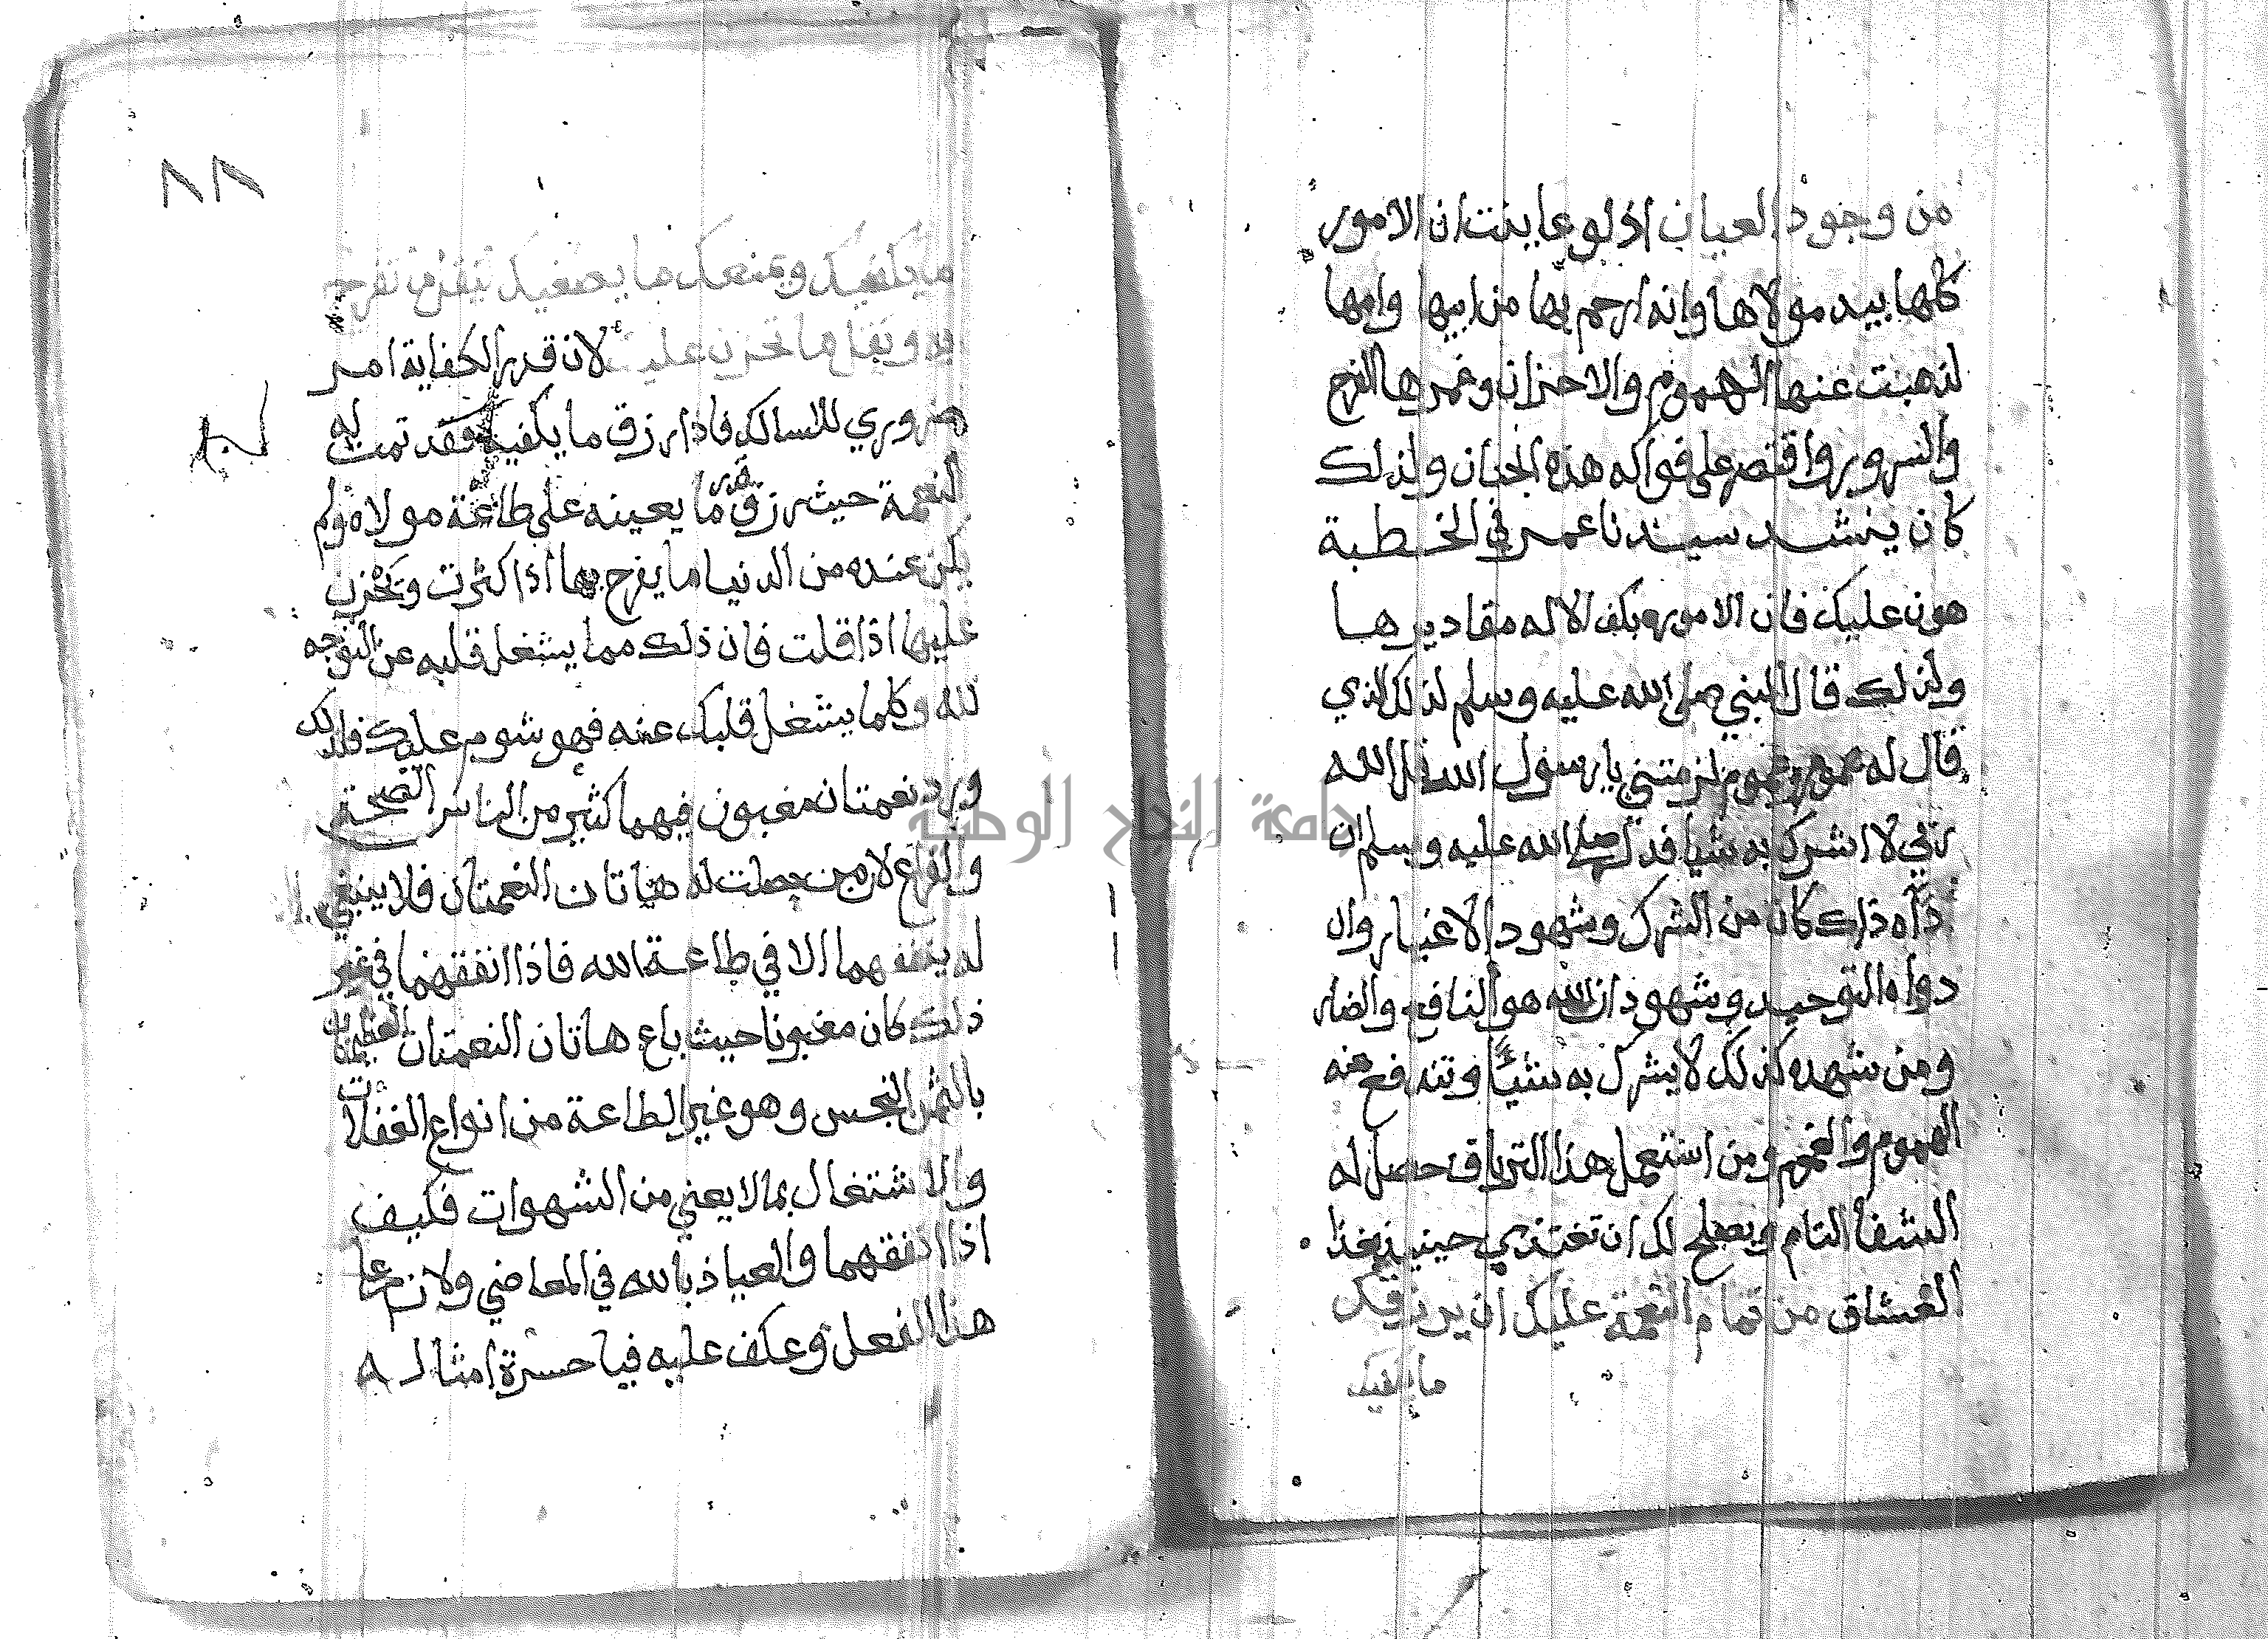 من وجود العيان اذ لو عاينت ان الامور
كلها بيد مولاها وانه ارحم بها من ابيها وامها
لذهبت عنها الهموم والاحزان وغمرها الفرح
والسرور واقتصر على فواكه هذه الجنان ولذلك
كان ينشد سيدنا عمر في الخطبة
هون عليك فان الامور بكف الاله مقاديرها
ولذلك قال النبي صلى الله عليه وسلم لذلك الذي
قال له هموم وغموم لزمتني يا رسول الله قل الله
ربي لا اشرك به شيا فدل صلى الله عليه وسلم ان
ذاه ذلك كان من الشرك وشهود الاغيار وان
دواه التوحيد وشهود ان الله هو النافع والضار
ومن شهده كذلك لا يشرك به شيئا وتندفع عنه
الهموم والغموم ومن استعمل هذا الترياق حصل له
الشفا التام ويصلح لك ان تغتذي حينيذ بغذا
العشاق من تمام النعمة عليك ان يرزقك
ما يكفيك
٨٨
ما يكفيك ويمنعك ما يطغيك ليقل ما تفرح
به ويقل ما تحزن عليه لان قدر الكفاية امر
ضروري للسالك فاذا رزق ما يكفيه فقد تمت له
النعمة حيث رزق قدر ما يعينه على طاعة مولاه ولم
يكن عنده من الدنيا ما يفرح بها اذا كثرت ويحزن
عليها اذا قلت فان ذلك مما يشغل قلبه عن التوجه
لله وكلما يشغل قلبك عنه فهو شوم عليك فلذلك
ورد نعمتان مغبون فيهما كثير من الناس الصحة
والفراغ لان من حصلت له هاتان النعمتان فلا ينبغي
له ينفقهما الا في طاعة الله فاذا انفقهما في غير
ذلك كان مغبونا حيث باع هاتان النعمتان العظيمتان
بالثمن البخس وهو غير الطاعة من انواع الغفلات
والاشتغال بما لا يعني من الشهوات فكيف
اذا انفقهما والعياذ بالله في المعاصي ولازم على
هذا الفعل وعكف عليه فيا حسرة امثاله
جامعة النجاح الوطنية